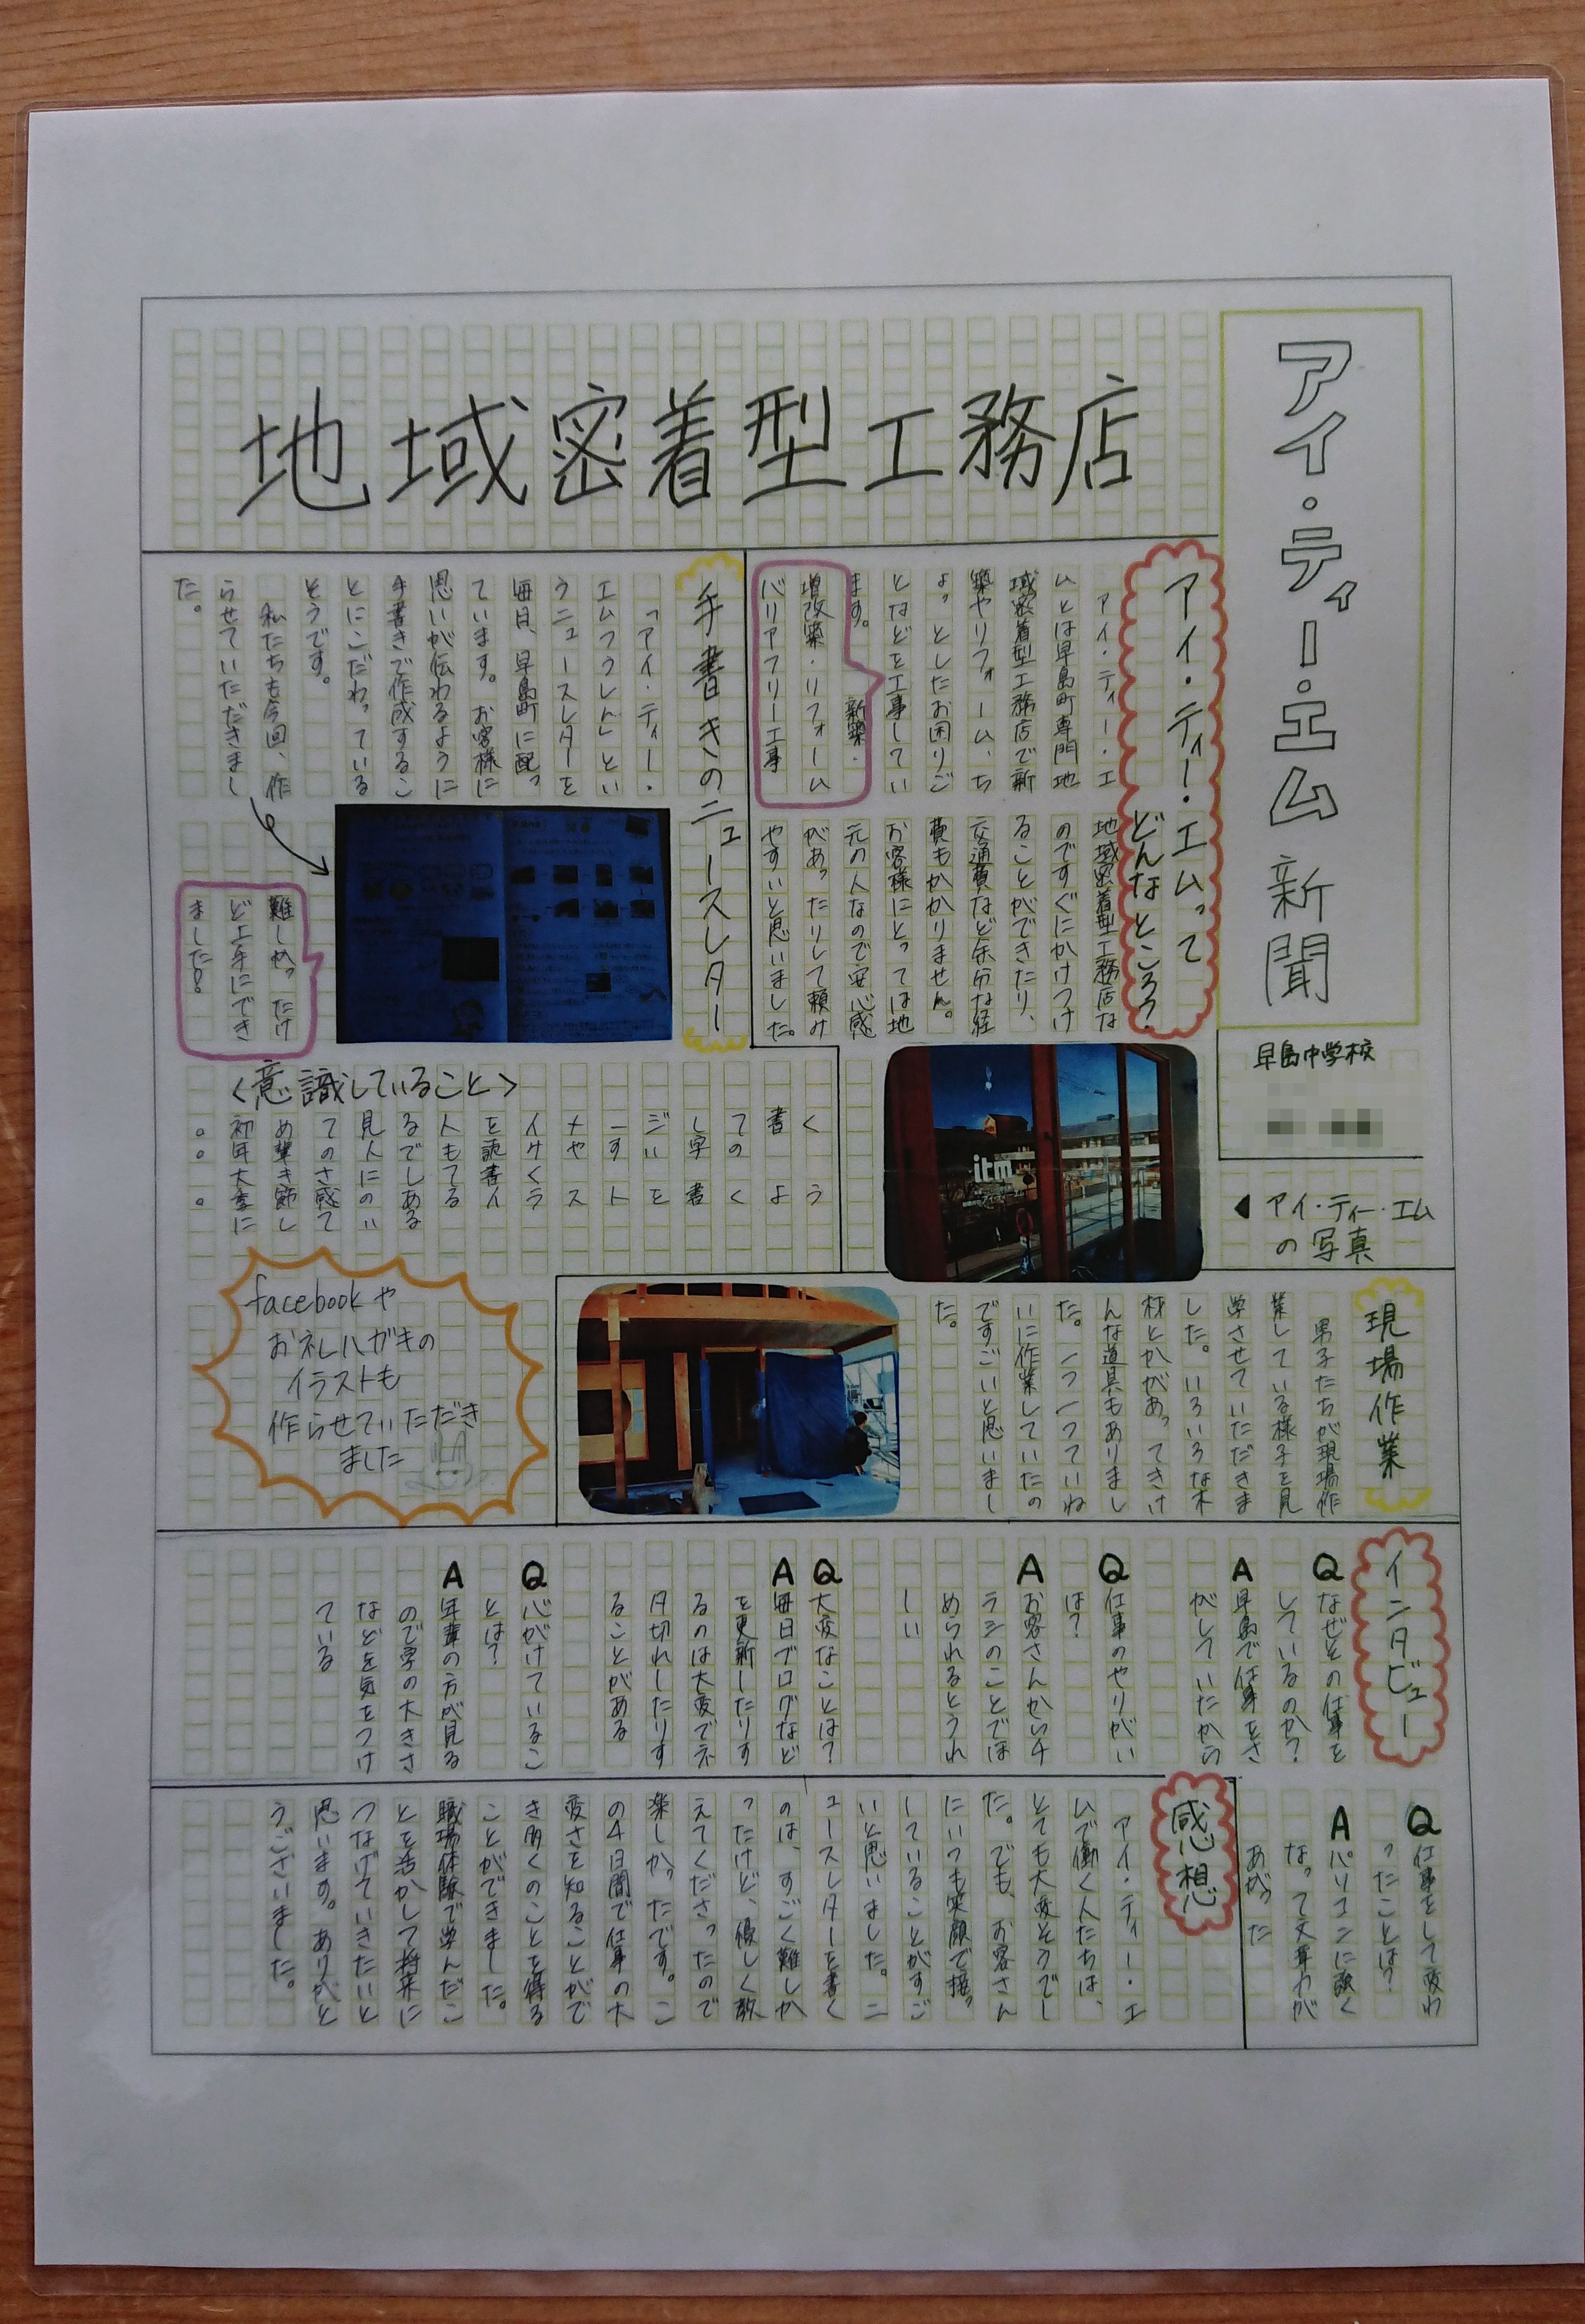 アイ・ティー・エム 新聞
早島中学校
地域密着型工務店
アイ・ティー・エムって
どんなところ?
アイ・ティー・エ
ムとは早島町専門地
域密着型工務店で新
築やリフォーム、ち
ょっとしたお困りご
となどを工事してい
ます。
新築・
増改築・リフォーム
バリアフリー工事
地域密着型工務店な
のですぐにかけつけ
ることができたり、
交通費など余分な経
費もかかりません。
お客様にとっては地
元の人なので安心感
があったりして頼み
やすいと思いました。
手書きのニュースレター
「アイ・ティー・
エムつうしん」とい
うニュースレターを
毎日、早島町に配っ
ています。お客様に
思いが伝わるように
手書きで作成するこ
とにこだわっている
そうです。
私たちも今回、作
らせていただきまし
た。
難しかったけ
ど上手にでき
ました!
◀ アイ・ティー・エム
の写真
mti
<意識していること>
く う
書 よ
ての く
し字 書
ジい を
ーす ト
メや ス
イサくラ
を読書イ
人もてる
るでしある
見人にのい
てのさ感て
め輩き節し
初年大季に
。。 。
facebookや
お礼ハガキの
イラストも
作らせていただき
ました
現場作業
男子たちが現場作
業している様子を見
学させていただきま
した。いろいろな木
材とかがあってきけ
んな道具もありまし
た。一つ一つていね
いに作業していたの
ですごいと思いまし
た。
インタビュー
Q なぜその仕事を
しているのか?
A 早島で仕事をさ
がしていたから
Q 仕事のやりがい
は?
A お客さんからチ
ラシのことでほ
められるとうれ
しい
Q 大変なことは?
A 毎日ブログなど
を更新したりす
るのは大変でネ
タ切れしたりす
ることがある
Q 心がけているこ
とは?
A 年輩の方が見る
ので字の大きさ
などを気をつけ
ている
Q 仕事をして変わ
ったことは?
A パソコンに強く
なって文章力が
あがった
感想
アイ・ティー・エ
ムで働く人たちは、
とても大変そうでし
た。でも、お客さん
にいつも笑顔で接っ
していることがすご
いと思いました。ニ
ュースレターを書く
のは、すごく難しか
ったけど、優しく教
えてくださったので
楽しかったです。こ
の4日間で仕事の大
変さを知ることがで
き多くのことを得る
ことができました。
職場体験で学んだこ
とを活かして将来に
つなげていきたいと
思います。ありがと
うございました。